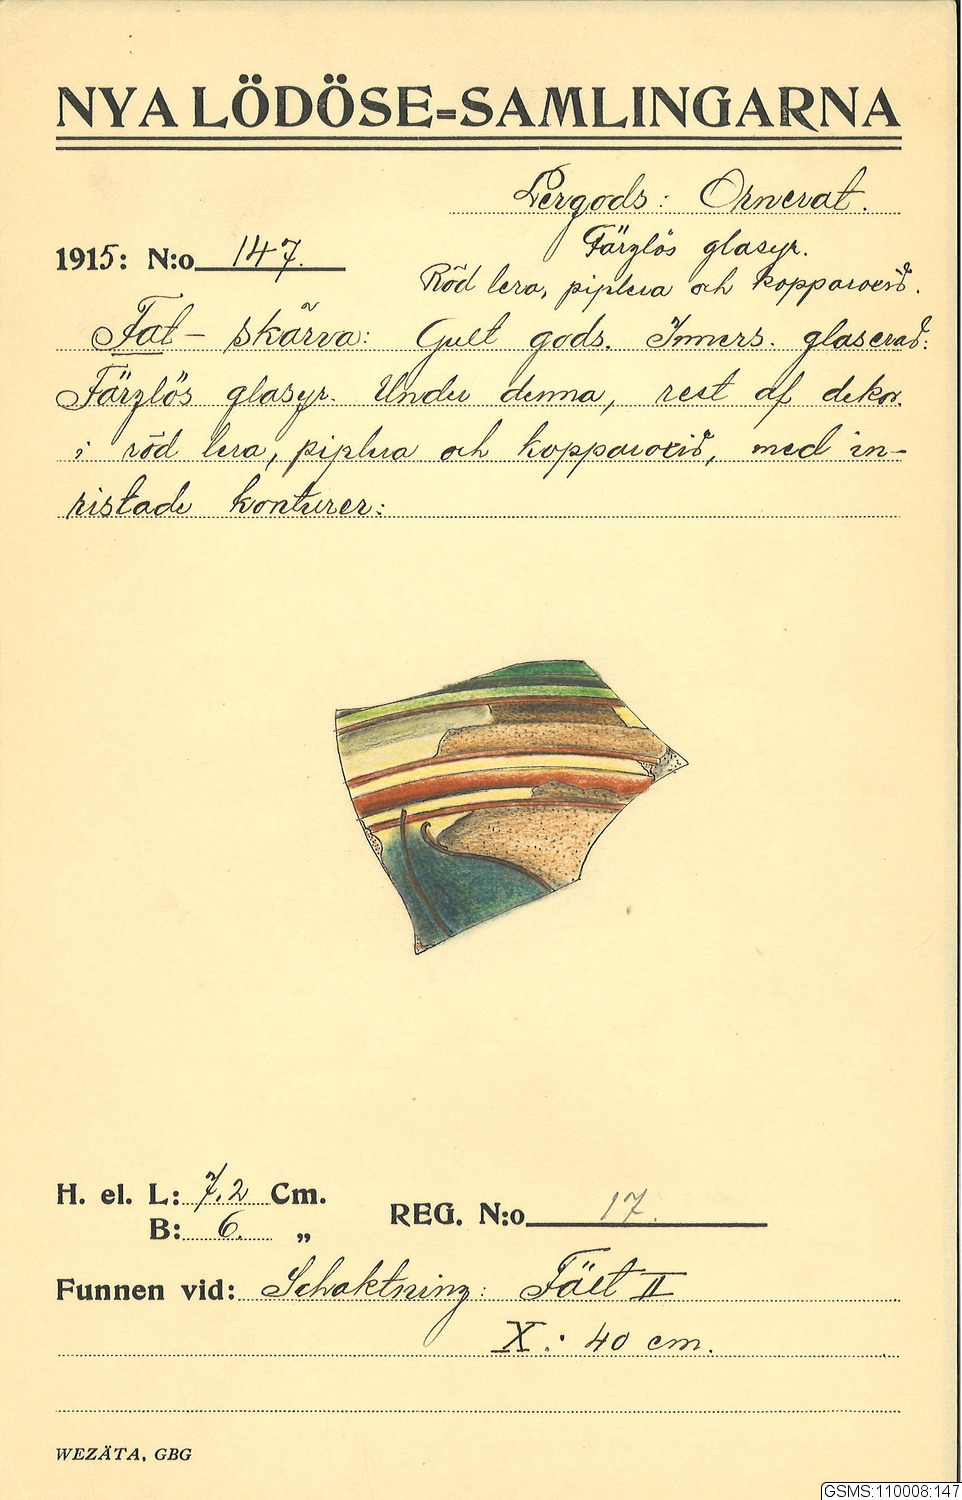 NYA LÖDÖSE=SAMLINGARNA
Lergods: Ornerat.
1915: N:o 147.
Färglös glasyr.
Röd lera, piplera och kopparoxid.
Fat - skärva: Gult gods. Inners. glaserad:
Färglös glasyr. Under denna, rest af dekor.
i röd lera, piplera och kopparoxid, med in-
ristade konturer:
H. el. L: 7,2 Cm.
B: 6. „
REG. N:o 17.
Funnen vid: Schaktning: Fält II
X: 40 cm.
WEZÄTA, GBG
GSMS:110008:147